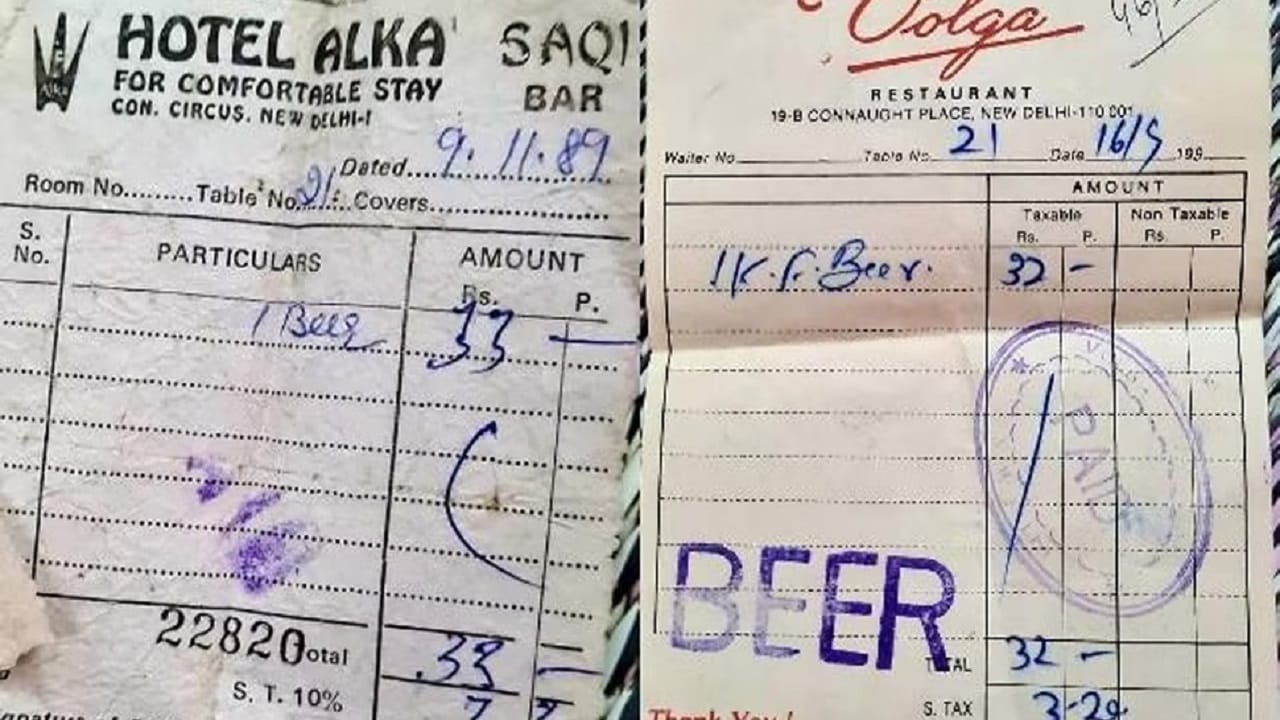 HOTEL ALKA SAQI
FOR COMFORTABLE STAY BAR
CON. CIRCUS. NEW DELHI-1
Dated.... 9.11.89
Room No.........Table No. 21 Covers
S. No. PARTICULARS AMOUNT
Rs. P.
1 Beer 33 —
22820
Total 33 —
S. T. 10%
Volga
RESTAURANT
19-B CONNAUGHT PLACE, NEW DELHI-110 001
Waiter No. Table No. 21 Date 16/5 199
AMOUNT
Taxable Non Taxable
Rs. P. Rs. P.
1 K.F. Beer. 32 -
PAID
BEER
TOTAL 32 -
S. TAX 3-20
Thank You!